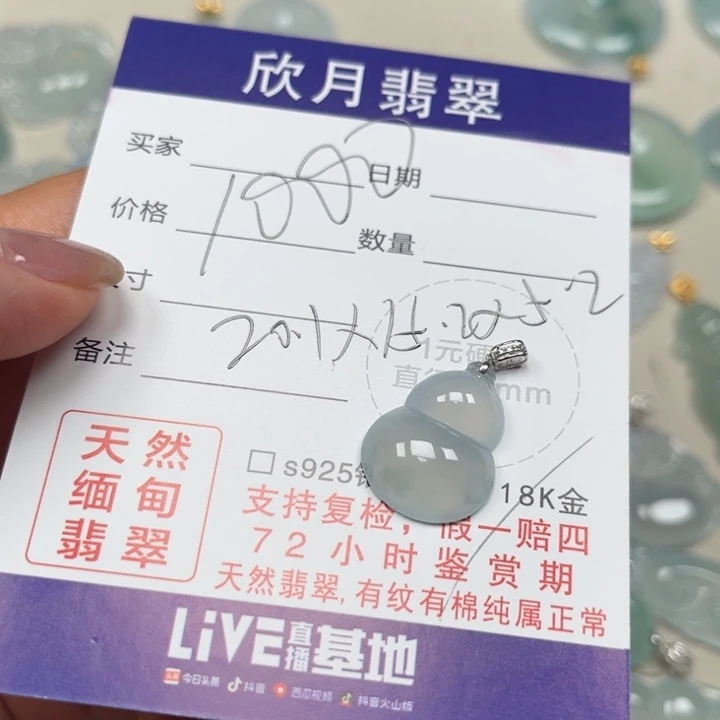 欣月翡翠
买家
日期
价格
数量
寸
备注
1元硬
直径 mm
天然
缅甸
翡翠
□ s925
18K金
支持复检，假一赔四
72小时鉴赏期
天然翡翠,有纹有棉纯属正常
LiVE直播基地
头条 今日头条 抖音 西瓜视频 抖音火山版